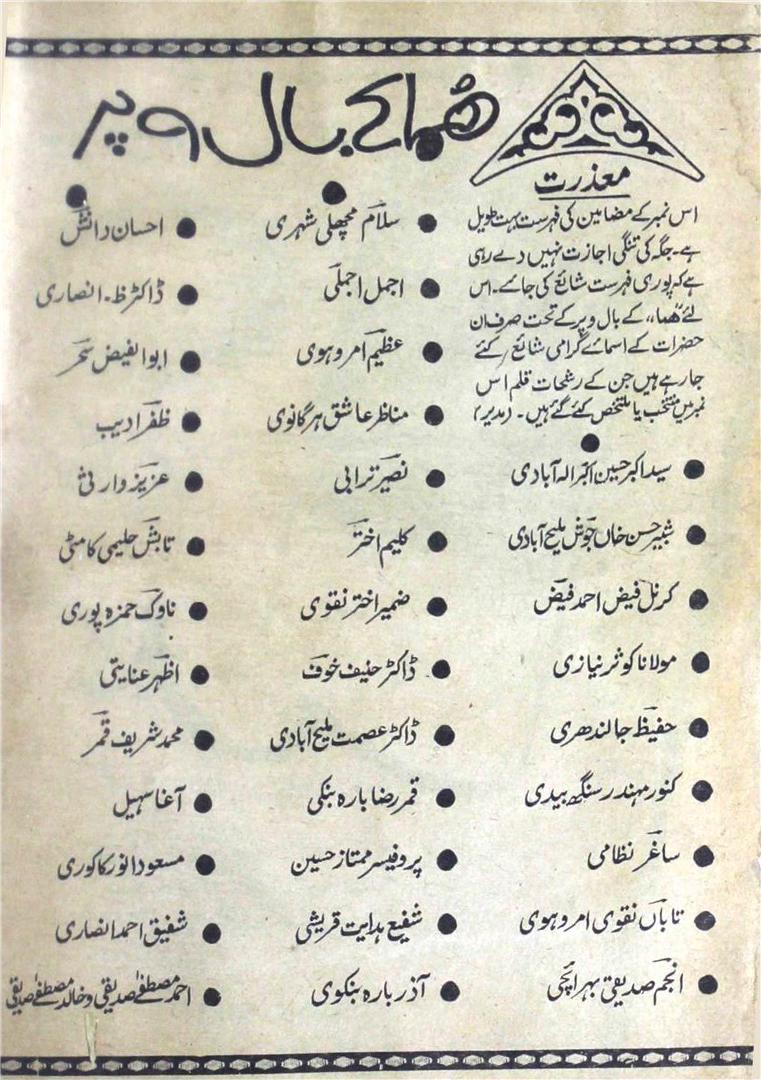 ھُما کے بال و پر
معذرت
اس نمبر کے مضامین کی فہرست بہت طویل
ہے۔ جگہ کی تنگی اجازت نہیں دے رہی
ہے کہ پوری فہرست شائع کی جائے۔ اس
لئے ”ھُما،، کے بال و پر کے تحت صرف ان
حضرات کے اسمائے گرامی شائع کئے
جا رہے ہیں جن کے رشحات قلم اس
نمبر میں منتخب یا ملخص کئے گئے ہیں۔ (مدیر)
● سید اکبر حسین اکبر الہ آبادی
● شبیر حسن خاں جوش ملیح آبادی
● کرنل فیض احمد فیض
● مولانا کوثر نیازی
● حفیظ جالندھری
● کنور مہندر سنگھ بیدی
● ساغر نظامی
● تاباں نقوی امروہوی
● انجم صدیقی بہرائچی
● سلام مچھلی شہری
● اجمل اجملی
● عظیم امروہوی
● مناظر عاشق ہرگانوی
● نصیر ترابی
● کلیم اختر
● ضمیر اختر نقوی
● ڈاکٹر حنیف خوف
● ڈاکٹر عصمت ملیح آبادی
● قمر رضا بارہ بنکی
● پروفیسر ممتاز حسین
● شفیع ہدایت قریشی
● آذر بارہ بنکوی
● احسان دانش
● ڈاکٹر ظ۔ انصاری
● ابوالفیض سحر
● ظفر ادیب
● عزیز وارثی
● تابش حلیمی کامٹی
● ناوک حمزہ پوری
● اظہر عنایتی
● محمد شریف قمر
● آغا سہیل
● مسعود انور کاکوری
● شفیق احمد انصاری
● احمد مصطفےٰ صدیقی و خالد مصطفےٰ صدیقی